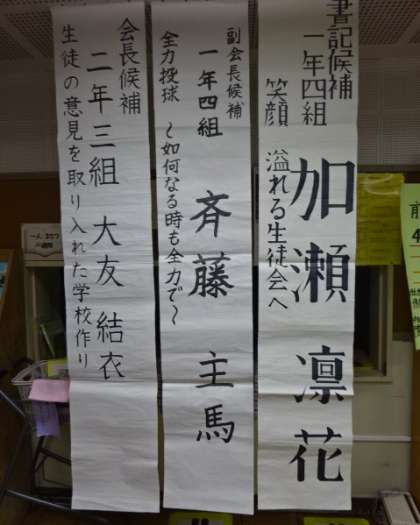 書記候補
一年四組 加瀬凛花
笑顔 溢れる生徒会へ
副会長候補
一年四組 斉藤主馬
全力投球 〜如何なる時も全力で〜
会長候補
二年三組 大友結衣
生徒の意見を取り入れた学校作り